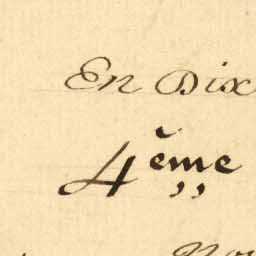 En Dix
4ĕme